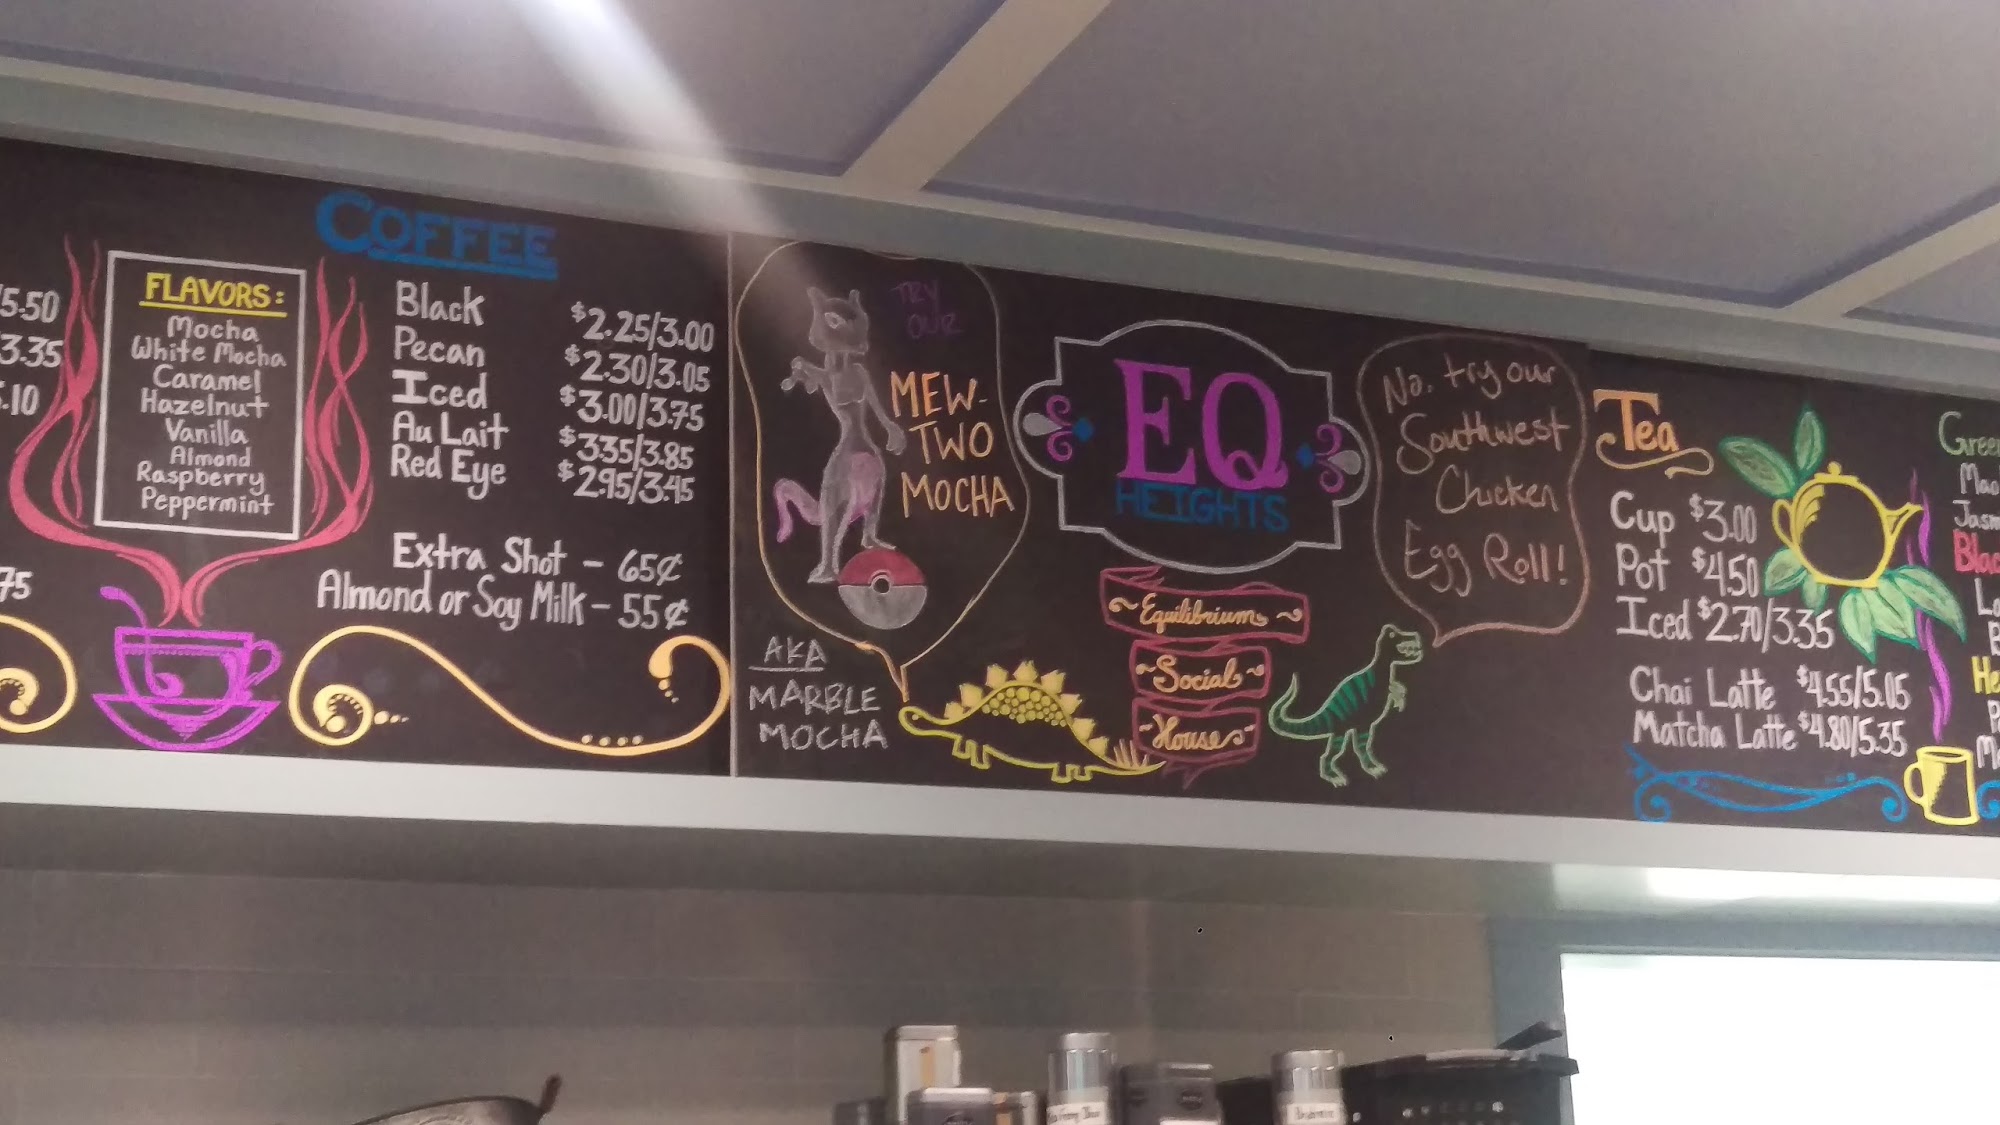 5.50
3.35
.10
75
FLAVORS:
Mocha
White Mocha
Caramel
Hazelnut
Vanilla
Almond
Raspberry
Peppermint
COFFEE
Black $2.25/3.00
Pecan $2.30/3.05
Iced $3.00/3.75
Au Lait $3.35/3.85
Red Eye $2.95/3.45
Extra Shot - 65¢
Almond or Soy Milk - 55¢
TRY
OUR
MEW-
TWO
MOCHA
AKA
MARBLE
MOCHA
EQ
HEIGHTS
Equilibrium
Social
House
No, try our
Southwest
Chicken
Egg Roll!
Tea
Cup $3.00
Pot $4.50
Iced $2.70/3.35
Chai Latte $4.55/5.05
Matcha Latte $4.80/5.35
Green
Jasm
Blac
He